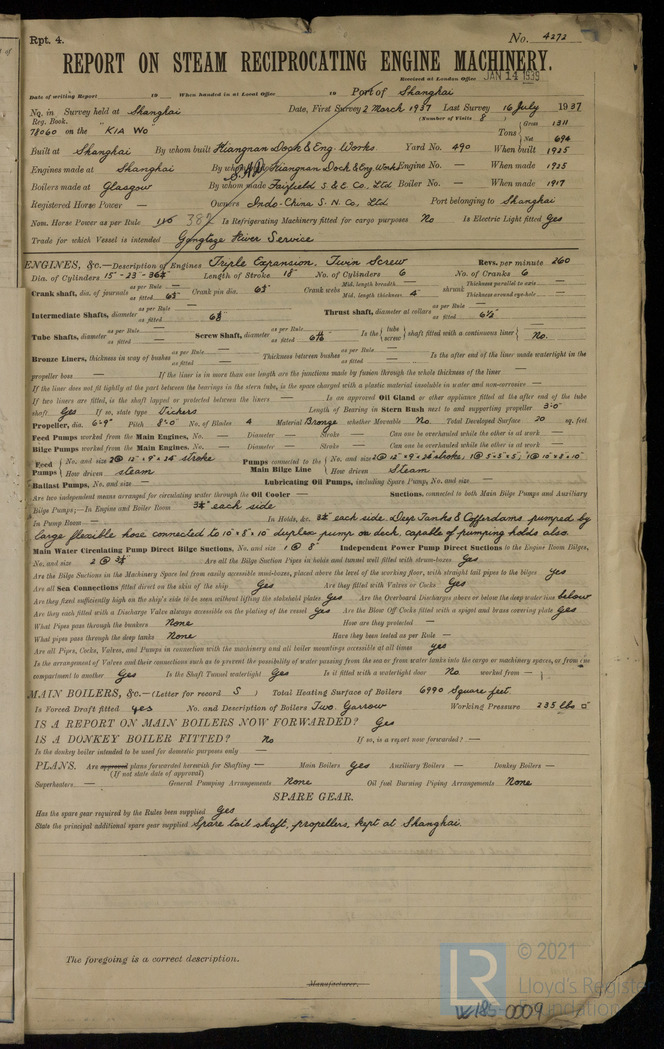 Rpt. 4.
No. 4272
REPORT ON STEAM RECIPROCATING ENGINE MACHINERY.
Received at London Office JAN 14 1939
Date of writing Report 19 When handed in at Local Office 19 Port of Shanghai
No. in Survey held at Shanghai Date, First Survey 2 March 1937 Last Survey 16 July 1937
Reg. Book. (Number of Visits 8)
78060 on the "KIA WO Tons Gross 1311
Net 694
Built at Shanghai By whom built Kiangnan Dock & Eng. Works Yard No. 490 When built 1925
Engines made at Shanghai By whom made Kiangnan Dock & Eng. Works Engine No. — When made 1925
Boilers made at Glasgow By whom made Fairfield S & E. Co. Ltd Boiler No. — When made 1917
Registered Horse Power — Owners Indo-China S. N. Co., Ltd Port belonging to Shanghai
Nom. Horse Power as per Rule 382 Is Refrigerating Machinery fitted for cargo purposes No Is Electric Light fitted Yes
Trade for which Vessel is intended Yangtsze River Service
ENGINES, &c.—Description of Engines Triple Expansion. Twin Screw Revs. per minute 260
Dia. of Cylinders 15"-23"- Length of Stroke 18" No. of Cylinders 6 No. of Cranks 6
Crank shaft, dia. of journals as per Rule — as fitted Crank pin dia. Crank webs Mid. length breadth — Mid. length thickness 4" shrunk Thickness parallel to axis — Thickness around eye-hole —
Intermediate Shafts, diameter as per Rule — as fitted Thrust shaft, diameter at collars as per Rule — as fitted 6½"
Tube Shafts, diameter as per Rule — as fitted — Screw Shaft, diameter as per Rule — as fitted Is the tube screw shaft fitted with a continuous liner No.
Bronze Liners, thickness in way of bushes as per Rule — as fitted — Thickness between bushes as per Rule — as fitted — Is the after end of the liner made watertight in the
propeller boss — If the liner is in more than one length are the junctions made by fusion through the whole thickness of the liner —
If the liner does not fit tightly at the part between the bearings in the stern tube, is the space charged with a plastic material insoluble in water and non-corrosive —
If two liners are fitted, is the shaft lapped or protected between the liners — Is an approved Oil Gland or other appliance fitted at the after end of the tube
shaft Yes If so, state type Vickers Length of Bearing in Stern Bush next to and supporting propeller 3'-0"
Propeller, dia. 6'-9" Pitch 8'-0" No. of Blades 4 Material Bronze whether Moveable No Total Developed Surface 20 sq. feet
Feed Pumps worked from the Main Engines, No. — Diameter — Stroke — Can one be overhauled while the other is at work —
Bilge Pumps worked from the Main Engines, No. — Diameter — Stroke — Can one be overhauled while the other is at work —
Feed Pumps No. and size 2@ 12" x 9" x 24" stroke Pumps connected to the Main Bilge Line No. and size 2@ 12" x 9" x 24" stroke, 1@ 5"x5"x5", 1@ 10"x8"x10"
How driven steam How driven Steam
Ballast Pumps, No. and size — Lubricating Oil Pumps, including Spare Pump, No. and size —
Are two independent means arranged for circulating water through the Oil Cooler — Suctions, connected to both Main Bilge Pumps and Auxiliary
Bilge Pumps;—In Engine and Boiler Room each side
In Pump Room — In Holds, &c. each side. Deep Tanks & Cofferdams pumped by
large flexible hose connected to 10"x8"x10" duplex pump on deck, capable of pumping holds also.
Main Water Circulating Pump Direct Bilge Suctions, No. and size 1 @ 8" Independent Power Pump Direct Suctions to the Engine Room Bilges,
No. and size Are all the Bilge Suction Pipes in holds and tunnel well fitted with strum-boxes Yes
Are the Bilge Suctions in the Machinery Space led from easily accessible mud-boxes, placed above the level of the working floor, with straight tail pipes to the bilges yes
Are all Sea Connections fitted direct on the skin of the ship Yes Are they fitted with Valves or Cocks Yes
Are they fixed sufficiently high on the ship's side to be seen without lifting the stokehold plates Yes Are the Overboard Discharges above or below the deep water line below
Are they each fitted with a Discharge Valve always accessible on the plating of the vessel Yes Are the Blow Off Cocks fitted with a spigot and brass covering plate Yes
What Pipes pass through the bunkers None How are they protected —
What pipes pass through the deep tanks None Have they been tested as per Rule —
Are all Pipes, Cocks, Valves, and Pumps in connection with the machinery and all boiler mountings accessible at all times yes
Is the arrangement of Valves and their connections such as to prevent the possibility of water passing from the sea or from water tanks into the cargo or machinery spaces, or from one
compartment to another Yes Is the Shaft Tunnel watertight Yes Is it fitted with a watertight door No worked from —
MAIN BOILERS, &c.—(Letter for record S) Total Heating Surface of Boilers 6990 Square feet
Is Forced Draft fitted yes No. and Description of Boilers Two. Yarrow Working Pressure 235 lbs □"
IS A REPORT ON MAIN BOILERS NOW FORWARDED? Yes
IS A DONKEY BOILER FITTED? No If so, is a report now forwarded? —
Is the donkey boiler intended to be used for domestic purposes only —
PLANS. Are approved plans forwarded herewith for Shafting — Main Boilers Yes Auxiliary Boilers — Donkey Boilers —
(If not state date of approval)
Superheaters — General Pumping Arrangements None Oil fuel Burning Piping Arrangements None
SPARE GEAR.
Has the spare gear required by the Rules been supplied Yes
State the principal additional spare gear supplied Spare tail shaft, propellers, kept at Shanghai.
The foregoing is a correct description.
Manufacturer.
© 2021
LR Lloyd's Register
Foundation
W185-0009